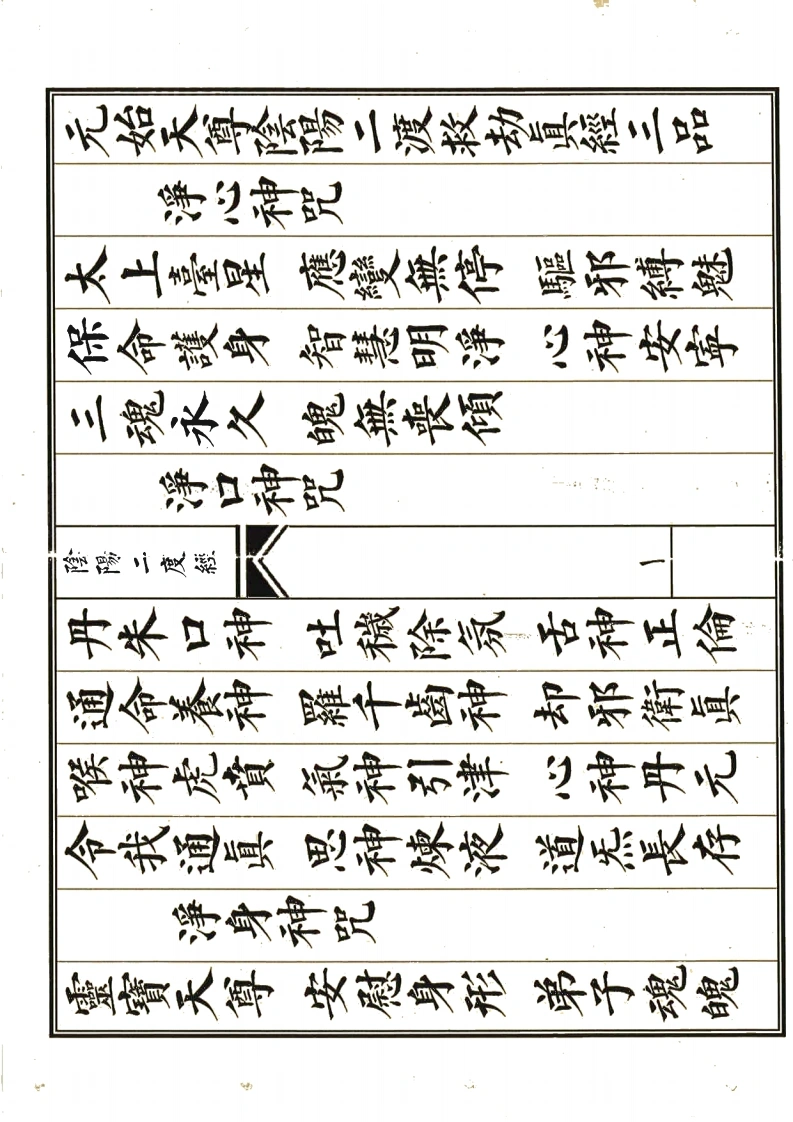 元始天尊陰陽二渡救劫眞經三品
淨心神咒
太上臺星 應變無停 驅邪縛魅
保命護身 智慧明淨 心神安寧
三魂永久 魄無喪傾
淨口神咒
陰陽二度經 一
丹朱口神 吐穢除氛 舌神正倫
通命養神 羅千齒神 却邪衛眞
喉神虎賁 氣神引津 心神丹元
令我通眞 思神煉液 道炁長存
淨身神咒
靈寶天尊 安慰身形 弟子魂魄